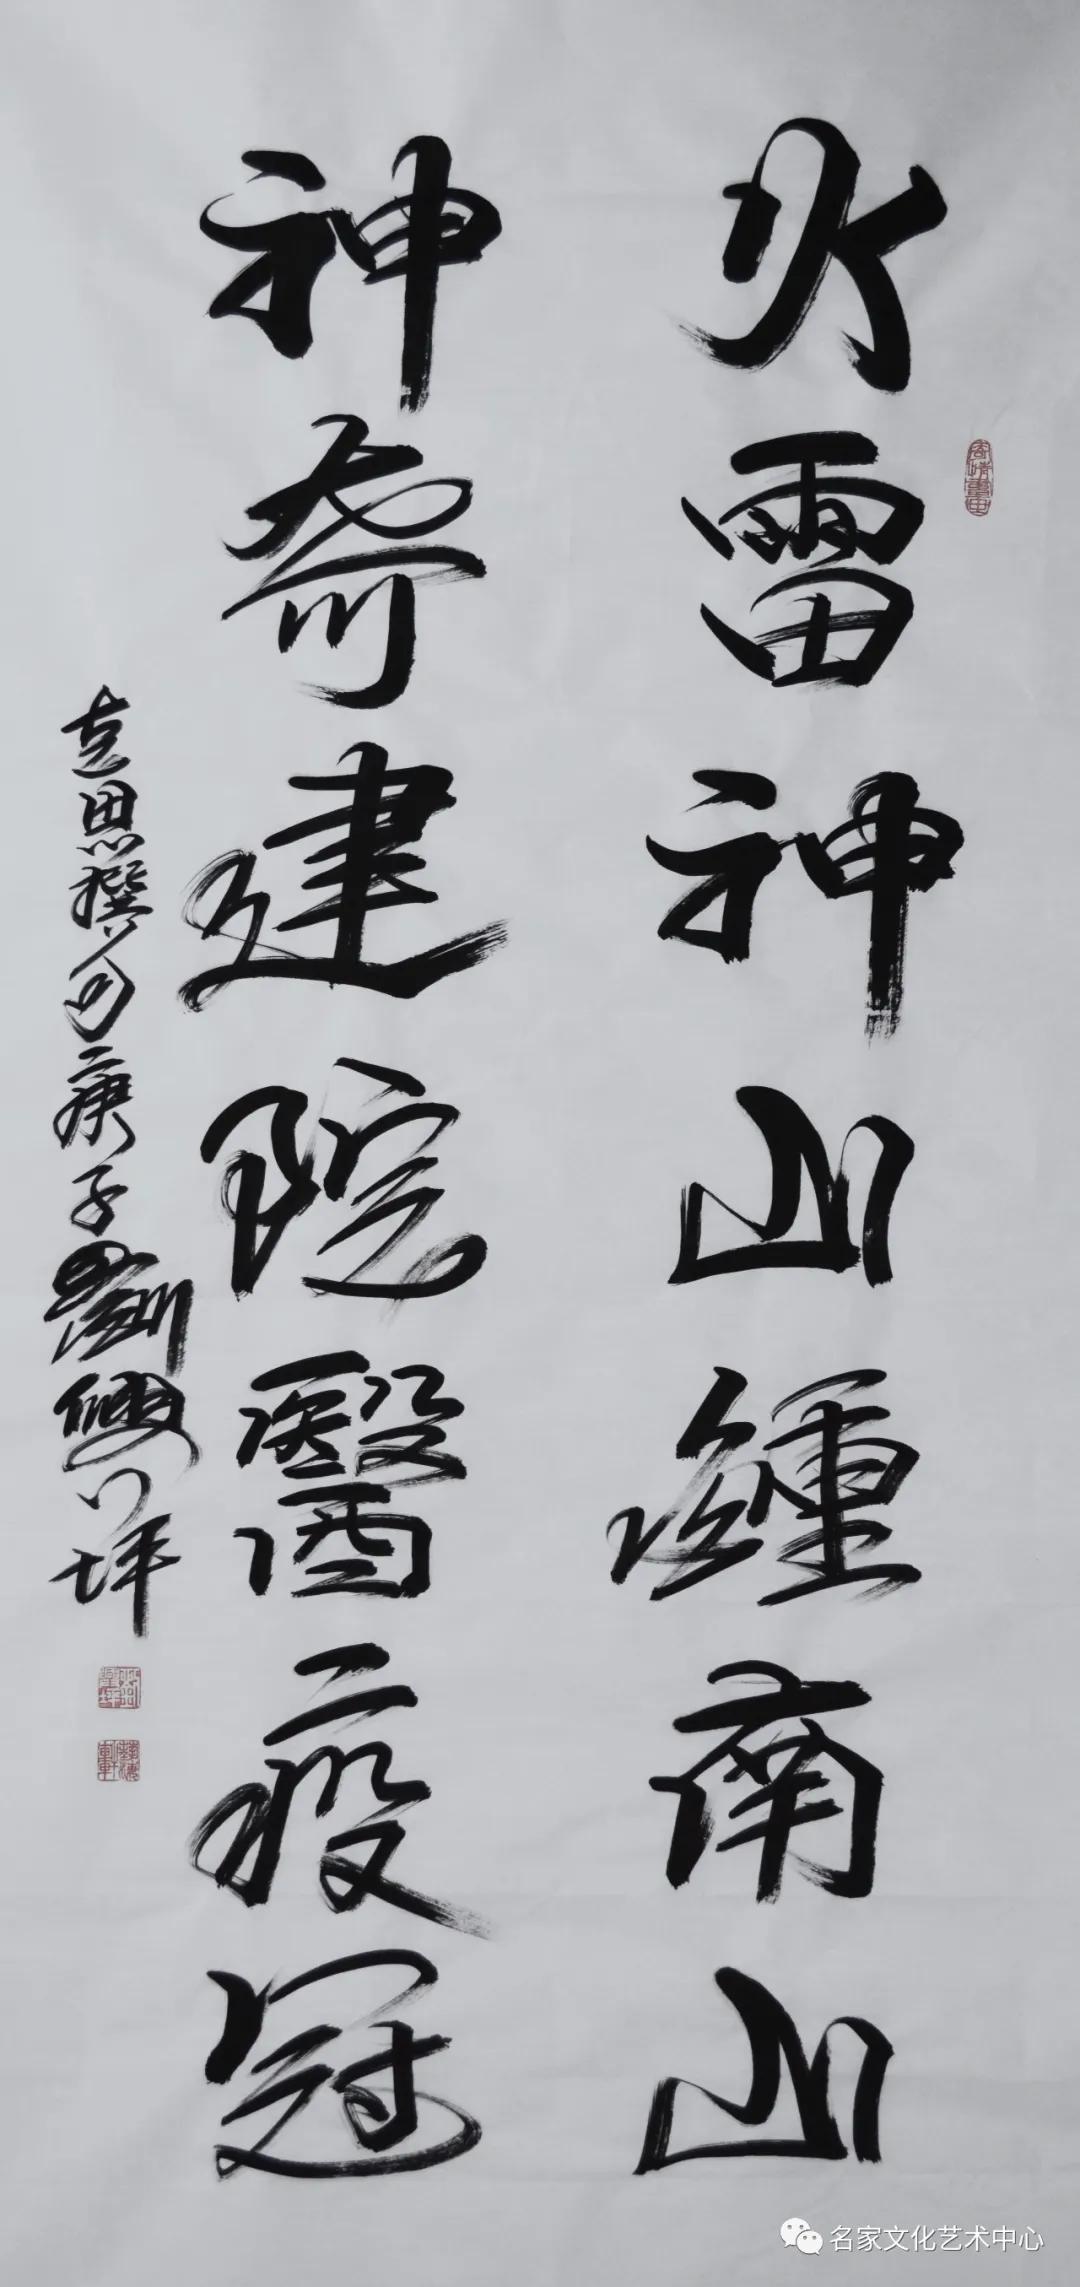 火雷神山鍾南山
神奇建院醫疫冠
思撰句庚子劉興坪
名家文化艺术中心